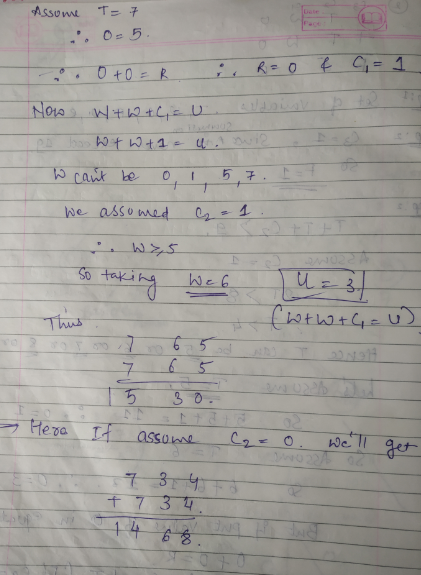 Assume T = 7
∴ O = 5.
∴ O + O = R ∴ R = 0 & C₁ = 1
Now W + W + C₁ = U
W + W + 1 = u.
W can't be 0, 1, 5, 7.
We assumed C₂ = 1.
∴ W ≥ 5
So taking W = 6 U = 3.
(W + W + C₁ = U)
Thus
7 6 5
7 6 5
1 5 3 0.
→ Here If assume C₂ = 0. we'll get
7 3 4
+ 7 3 4.
1 4 6 8.